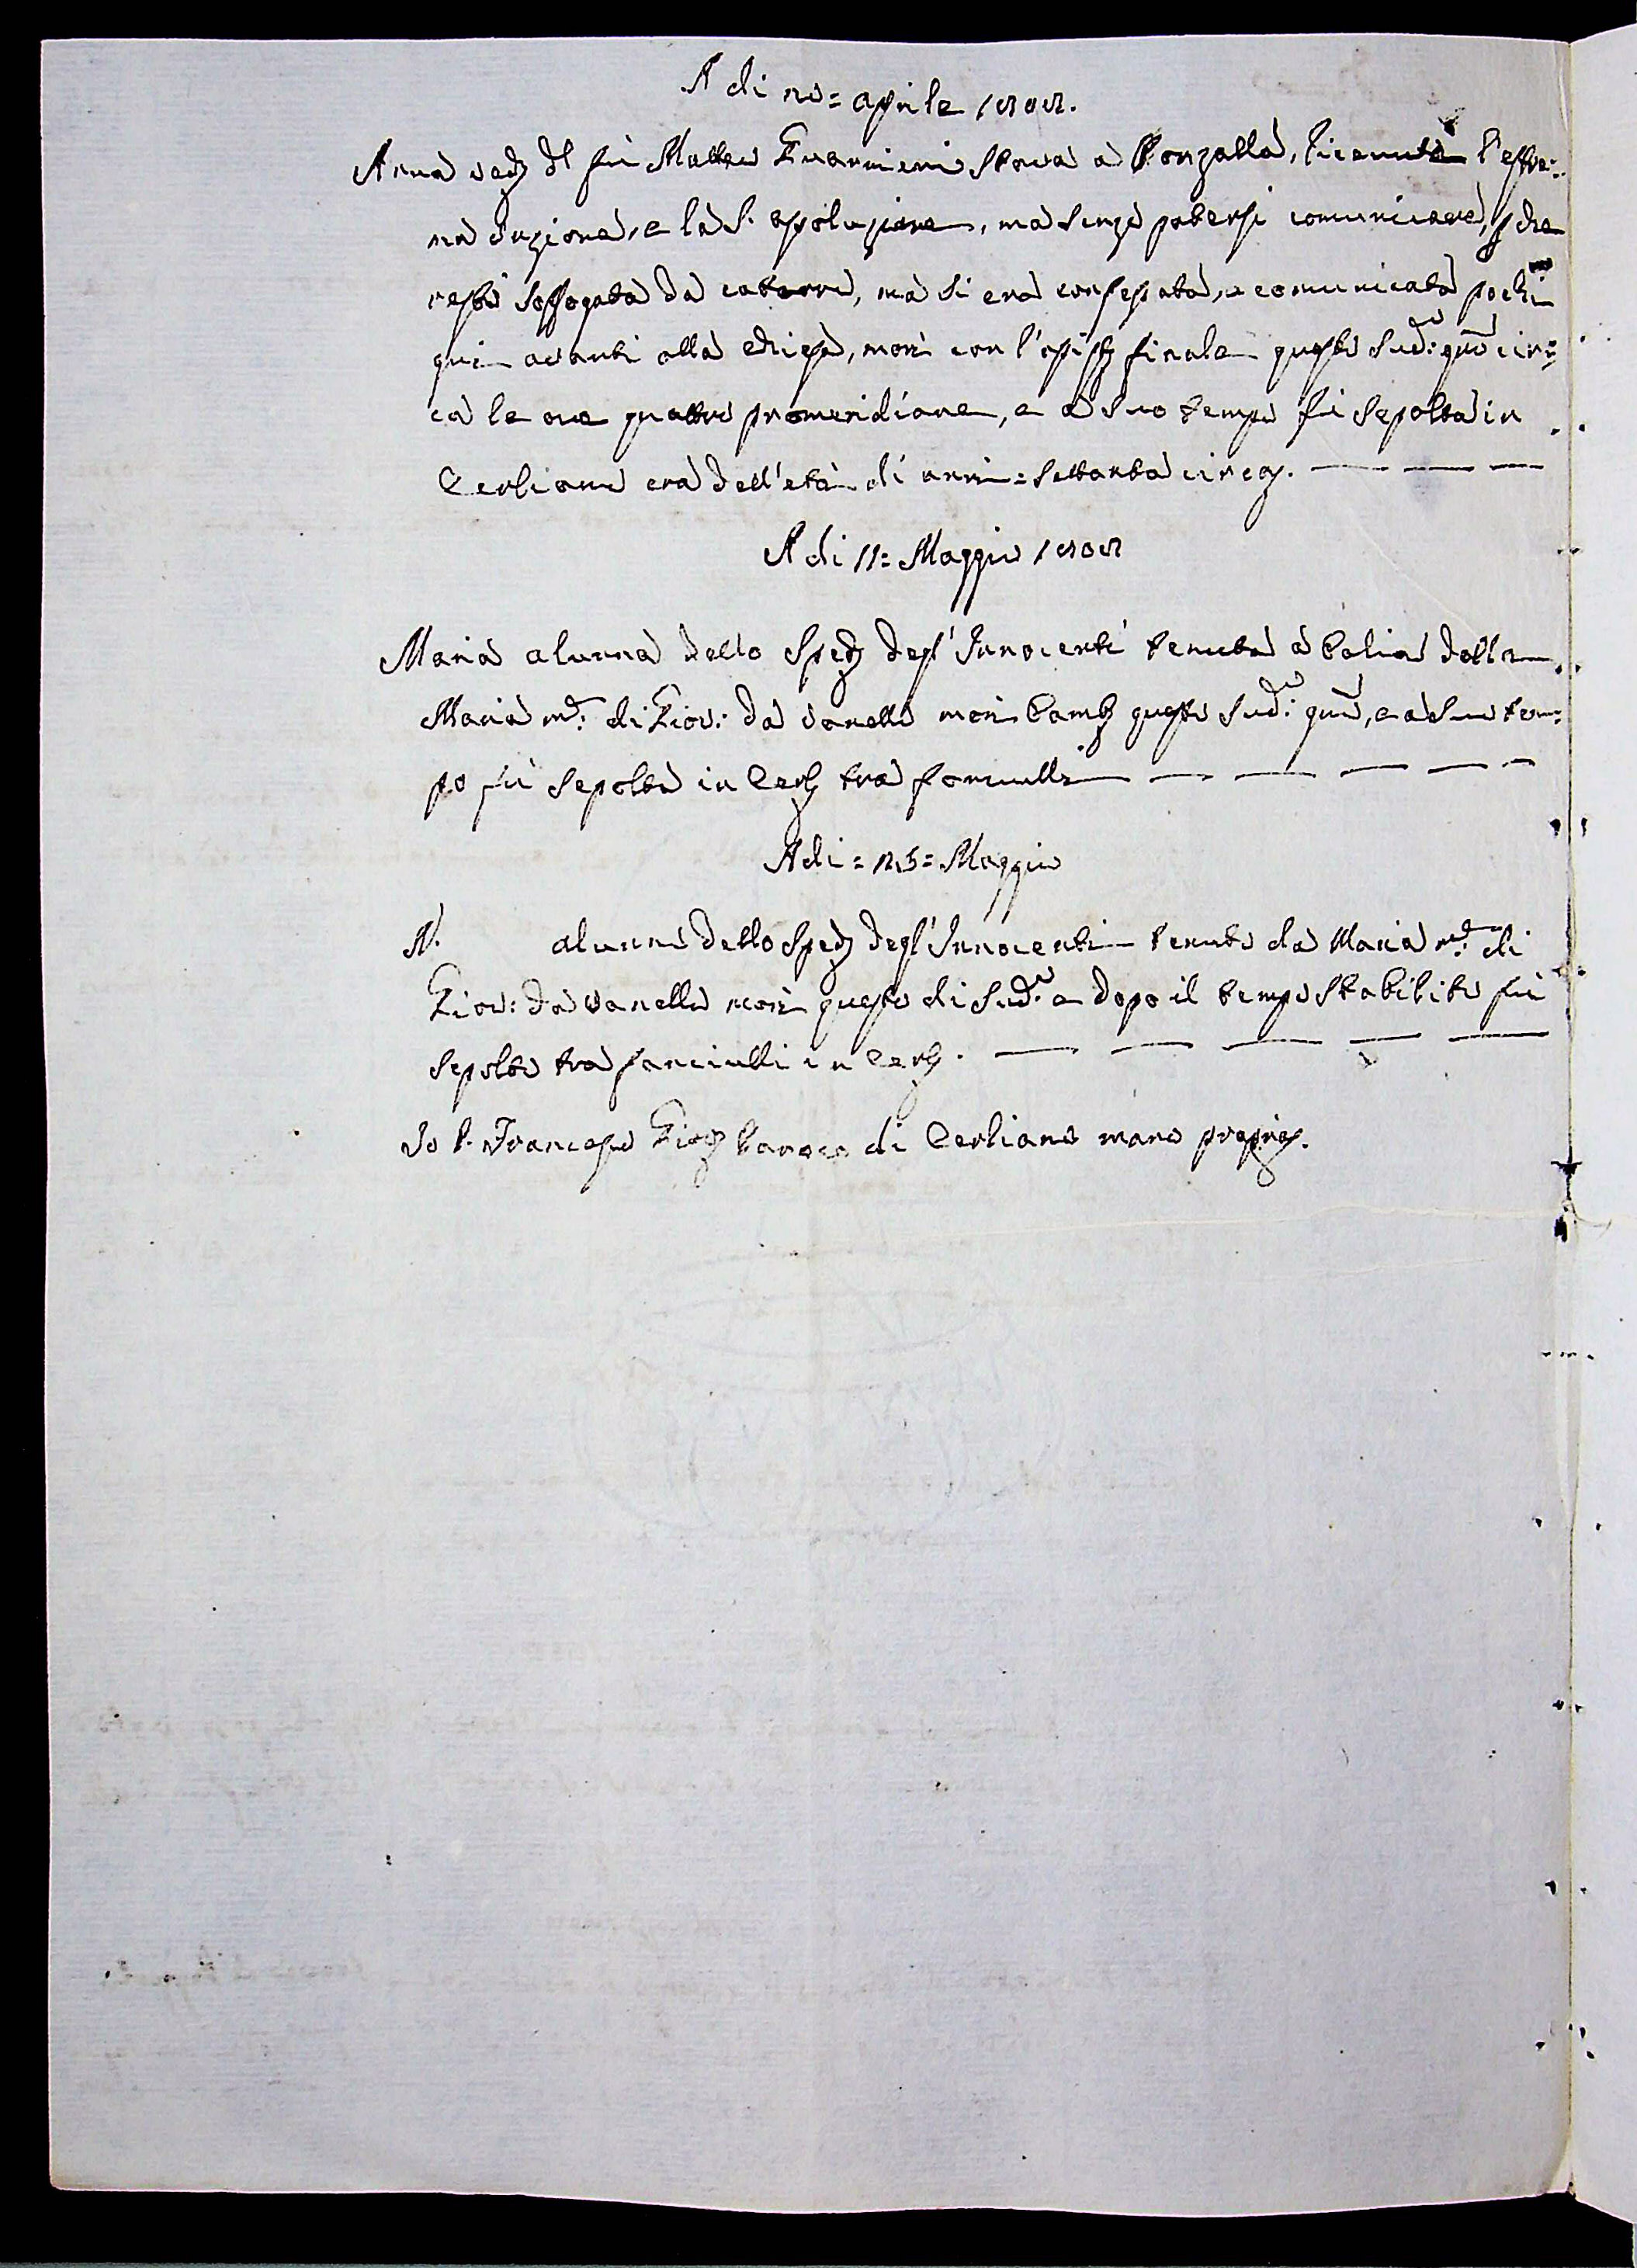 A di 20 = aprile 1808.
Anna ved: del fù Matteo Guarnieri stava a Ronzalla, ricevuta l'estre:
ma unzione, e la S. assoluzione, ma senza potersi comunicare, p che
restò soffogata da catarro, ma si era confessata, e comunicata pochi
gni avanti alla chiesa, morì con l'assist: finale questo sud:o gno cir:
ca le ore quattro promeridiane, e a suo tempo fù sepolta in
Cerliano era dell'età di anni = settanta circa.
A di 11 = Maggio 1808
Maria alunna dello Sped: degl'Innocenti tenuta a balia dalla
Maria m:e di Giov: da Vanella morì bamb: questo sud:o gno, e a suo tem:
po fù sepolta in Cerl: trà fanciulli
A di = 25 = Maggio
N. alunno dello Sped: degl'Innocenti tenuto da Maria m:e di
Giov: da Vanella morì questo di sud:o e dopo il tempo stabilito fù
sepolto tra fanciulli in Cerl:.
Io P. Francesco Paroco di Cerliano mano propria.